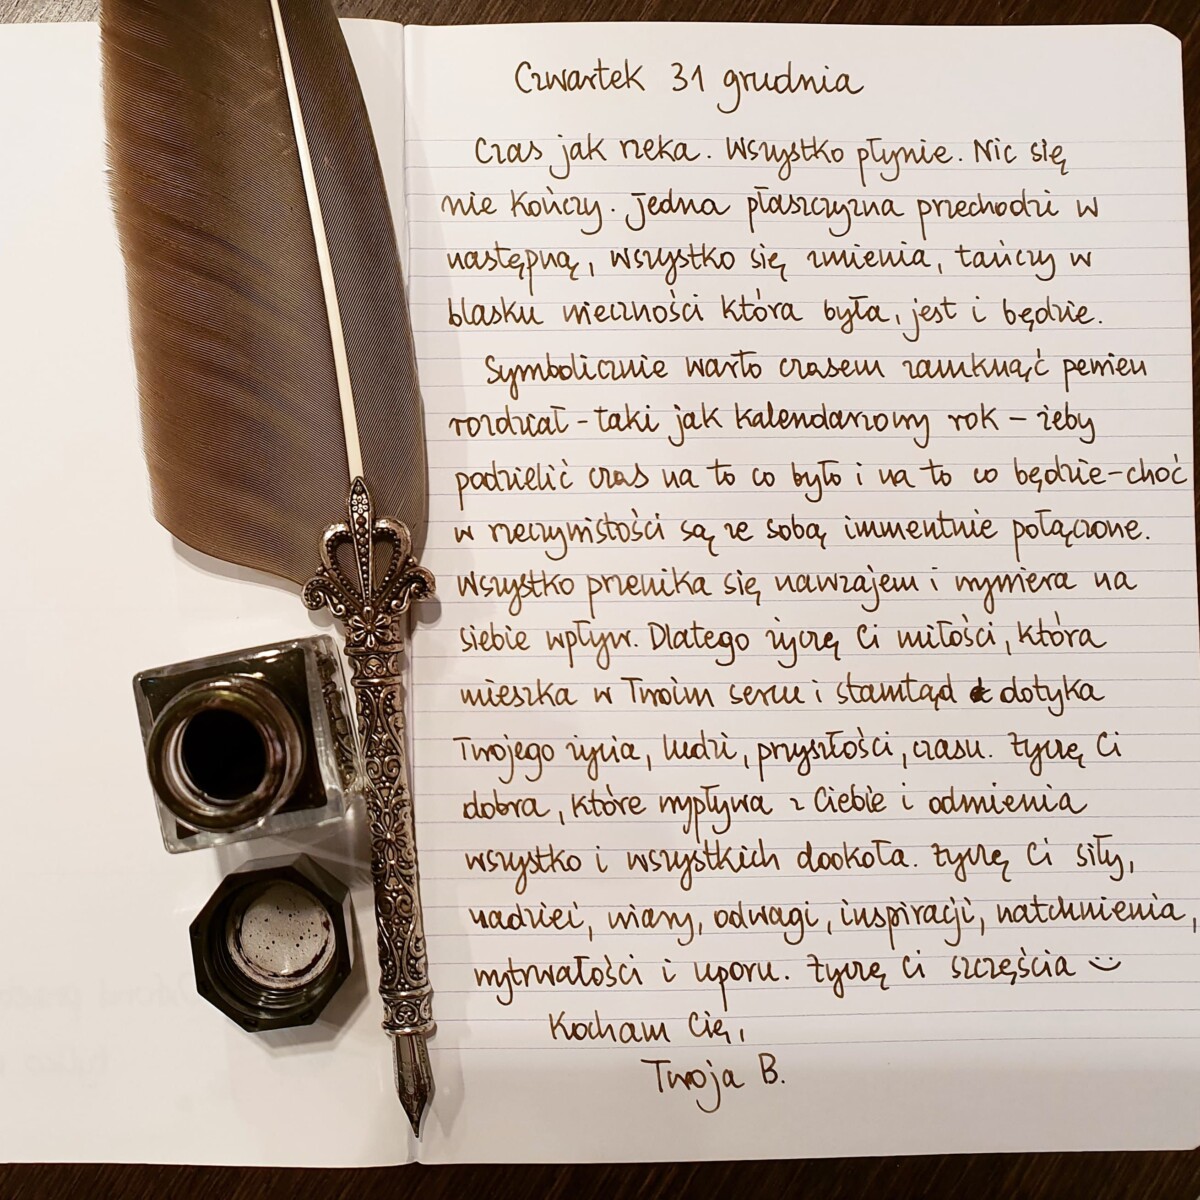 Czwartek 31 grudnia
Czas jak rzeka. Wszystko płynie. Nic się
nie kończy. Jedna płaszczyzna przechodzi w
następną, wszystko się zmienia, tańczy w
blasku wieczności która była, jest i będzie.
Symbolicznie warto czasem zamknąć pewien
rozdział - taki jak kalendarzowy rok - żeby
podzielić czas na to co było i na to co będzie - choć
w rzeczywistości są ze sobą immentnie połączone.
Wszystko przenika się nawzajem i wywiera na
siebie wpływ. Dlatego życzę Ci miłości, która
mieszka w Twoim sercu i stamtąd dotyka
Twojego życia, ludzi, przyszłości, czasu. Życzę Ci
dobra, które wypływa z Ciebie i odmienia
wszystko i wszystkich dookoła. Życzę Ci siły,
nadziei, wiary, odwagi, inspiracji, natchnienia,
wytrwałości i uporu. Życzę Ci szczęścia
Kocham Cię,
Twoja B.